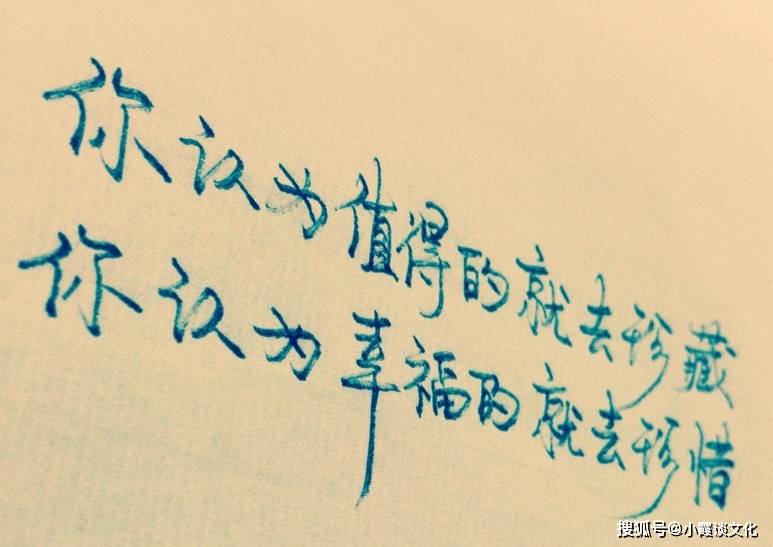 你认为值得的就去珍藏
你认为幸福的就去珍惜
搜狐号@小霞谈文化